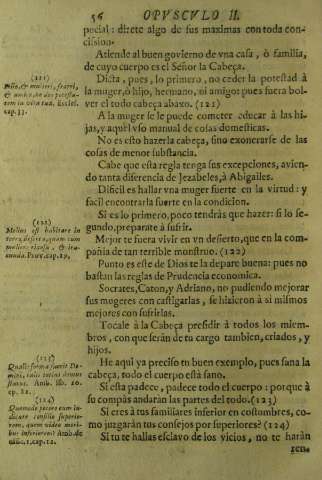 56 OPVSCVLO II.
pecial: direte algo de sus maximas con toda con-
cission.
Atiende al buen govierno de vna casa, ò familia,
de cuyo cuerpo es el Señor la Cabeça.
Dicta, pues, lo primero, no ceder la potestad à
la muger, ò hijo, hermano, ni amigo: pues fuera bol-
ver el todo cabeça abaxo. (121)
A la muger se le puede cometer educar à las hi-
jas, y aquel vso manual de cosas domesticas.
No es esto hazerla cabeça, sino exonerarse de las
cosas de menor substancia.
Cabe que esta regla tenga sus excepciones, avien-
do tanta diferencia de Jezabeles, à Abigailes.
Dificil es hallar vna muger fuerte en la virtud: y
facil encontrarla fuerte en la condicion.
Si es lo primero, poco tendràs que hazer: si lo se-
gundo, preparate à sufrir.
Mejor te fuera vivir en vn desierto, que en la com-
pañia de tan terrible monstruo. (122)
Punto es este de Dios te la depare buena: pues no
bastan las reglas de Prudencia economica.
Socrates, Caton, y Adriano, no pudiendo mejorar
sus mugeres con castigarlas, se hizieron à si mismos
mejores con sufrirlas.
Tocale à la Cabeça presidir à todos los miem-
bros, con que seràn de tu cargo tambien, criados, y
hijos.
He aqui ya preciso tu buen exemplo, pues sana la
cabeça, todo el cuerpo està sano.
Si esta padece, padece todo el cuerpo: porque à
su compàs andaràn las partes del todo. (123)
Si eres à tus familiares inferior en costumbres, co-
mo juzgaràn tus consejos por superiores? (124)
Si tu te hallas esclavo de los vicios, no te haràn
(121)
Filio, & mulieri, fratri,
& amico, ne des potesta-
tem in vita tua. Eccles.
cap. 33.
(122)
Melius est habitare in
terra deserta, quam cum
muliere rixosa, & ira-
cunda. Prov. cap. 19.
(123)
(124)